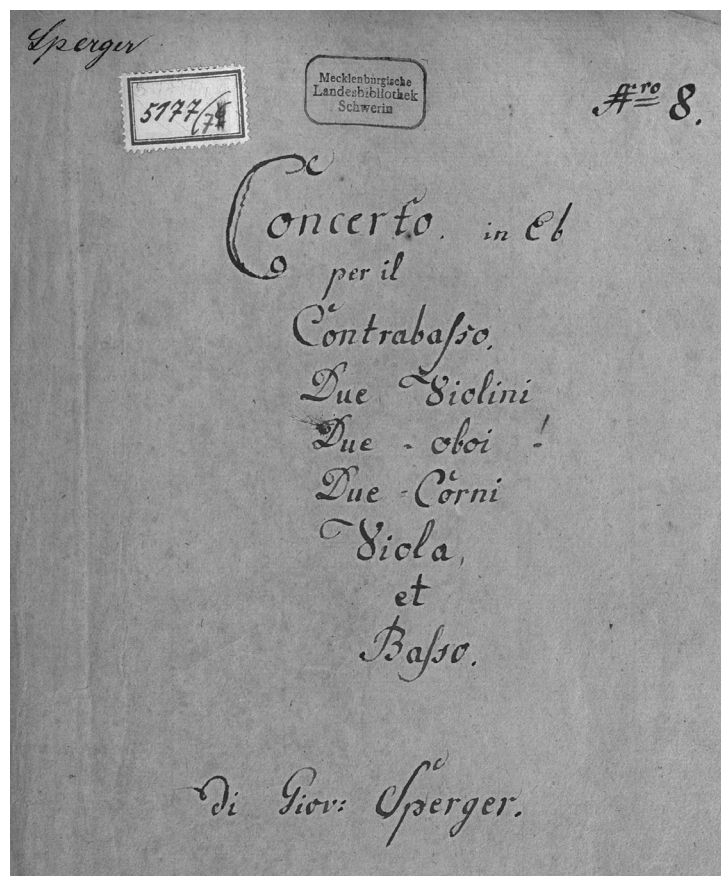 Sperger
5177/7
Mecklenburgische
Landesbibliothek
Schwerin
Nro 8.
Concerto. in Eb
per il
Contrabaſso.
Due Violini
Due - oboi !
Due - Corni
Viola,
et
Baſso.
di Giov: Sperger.